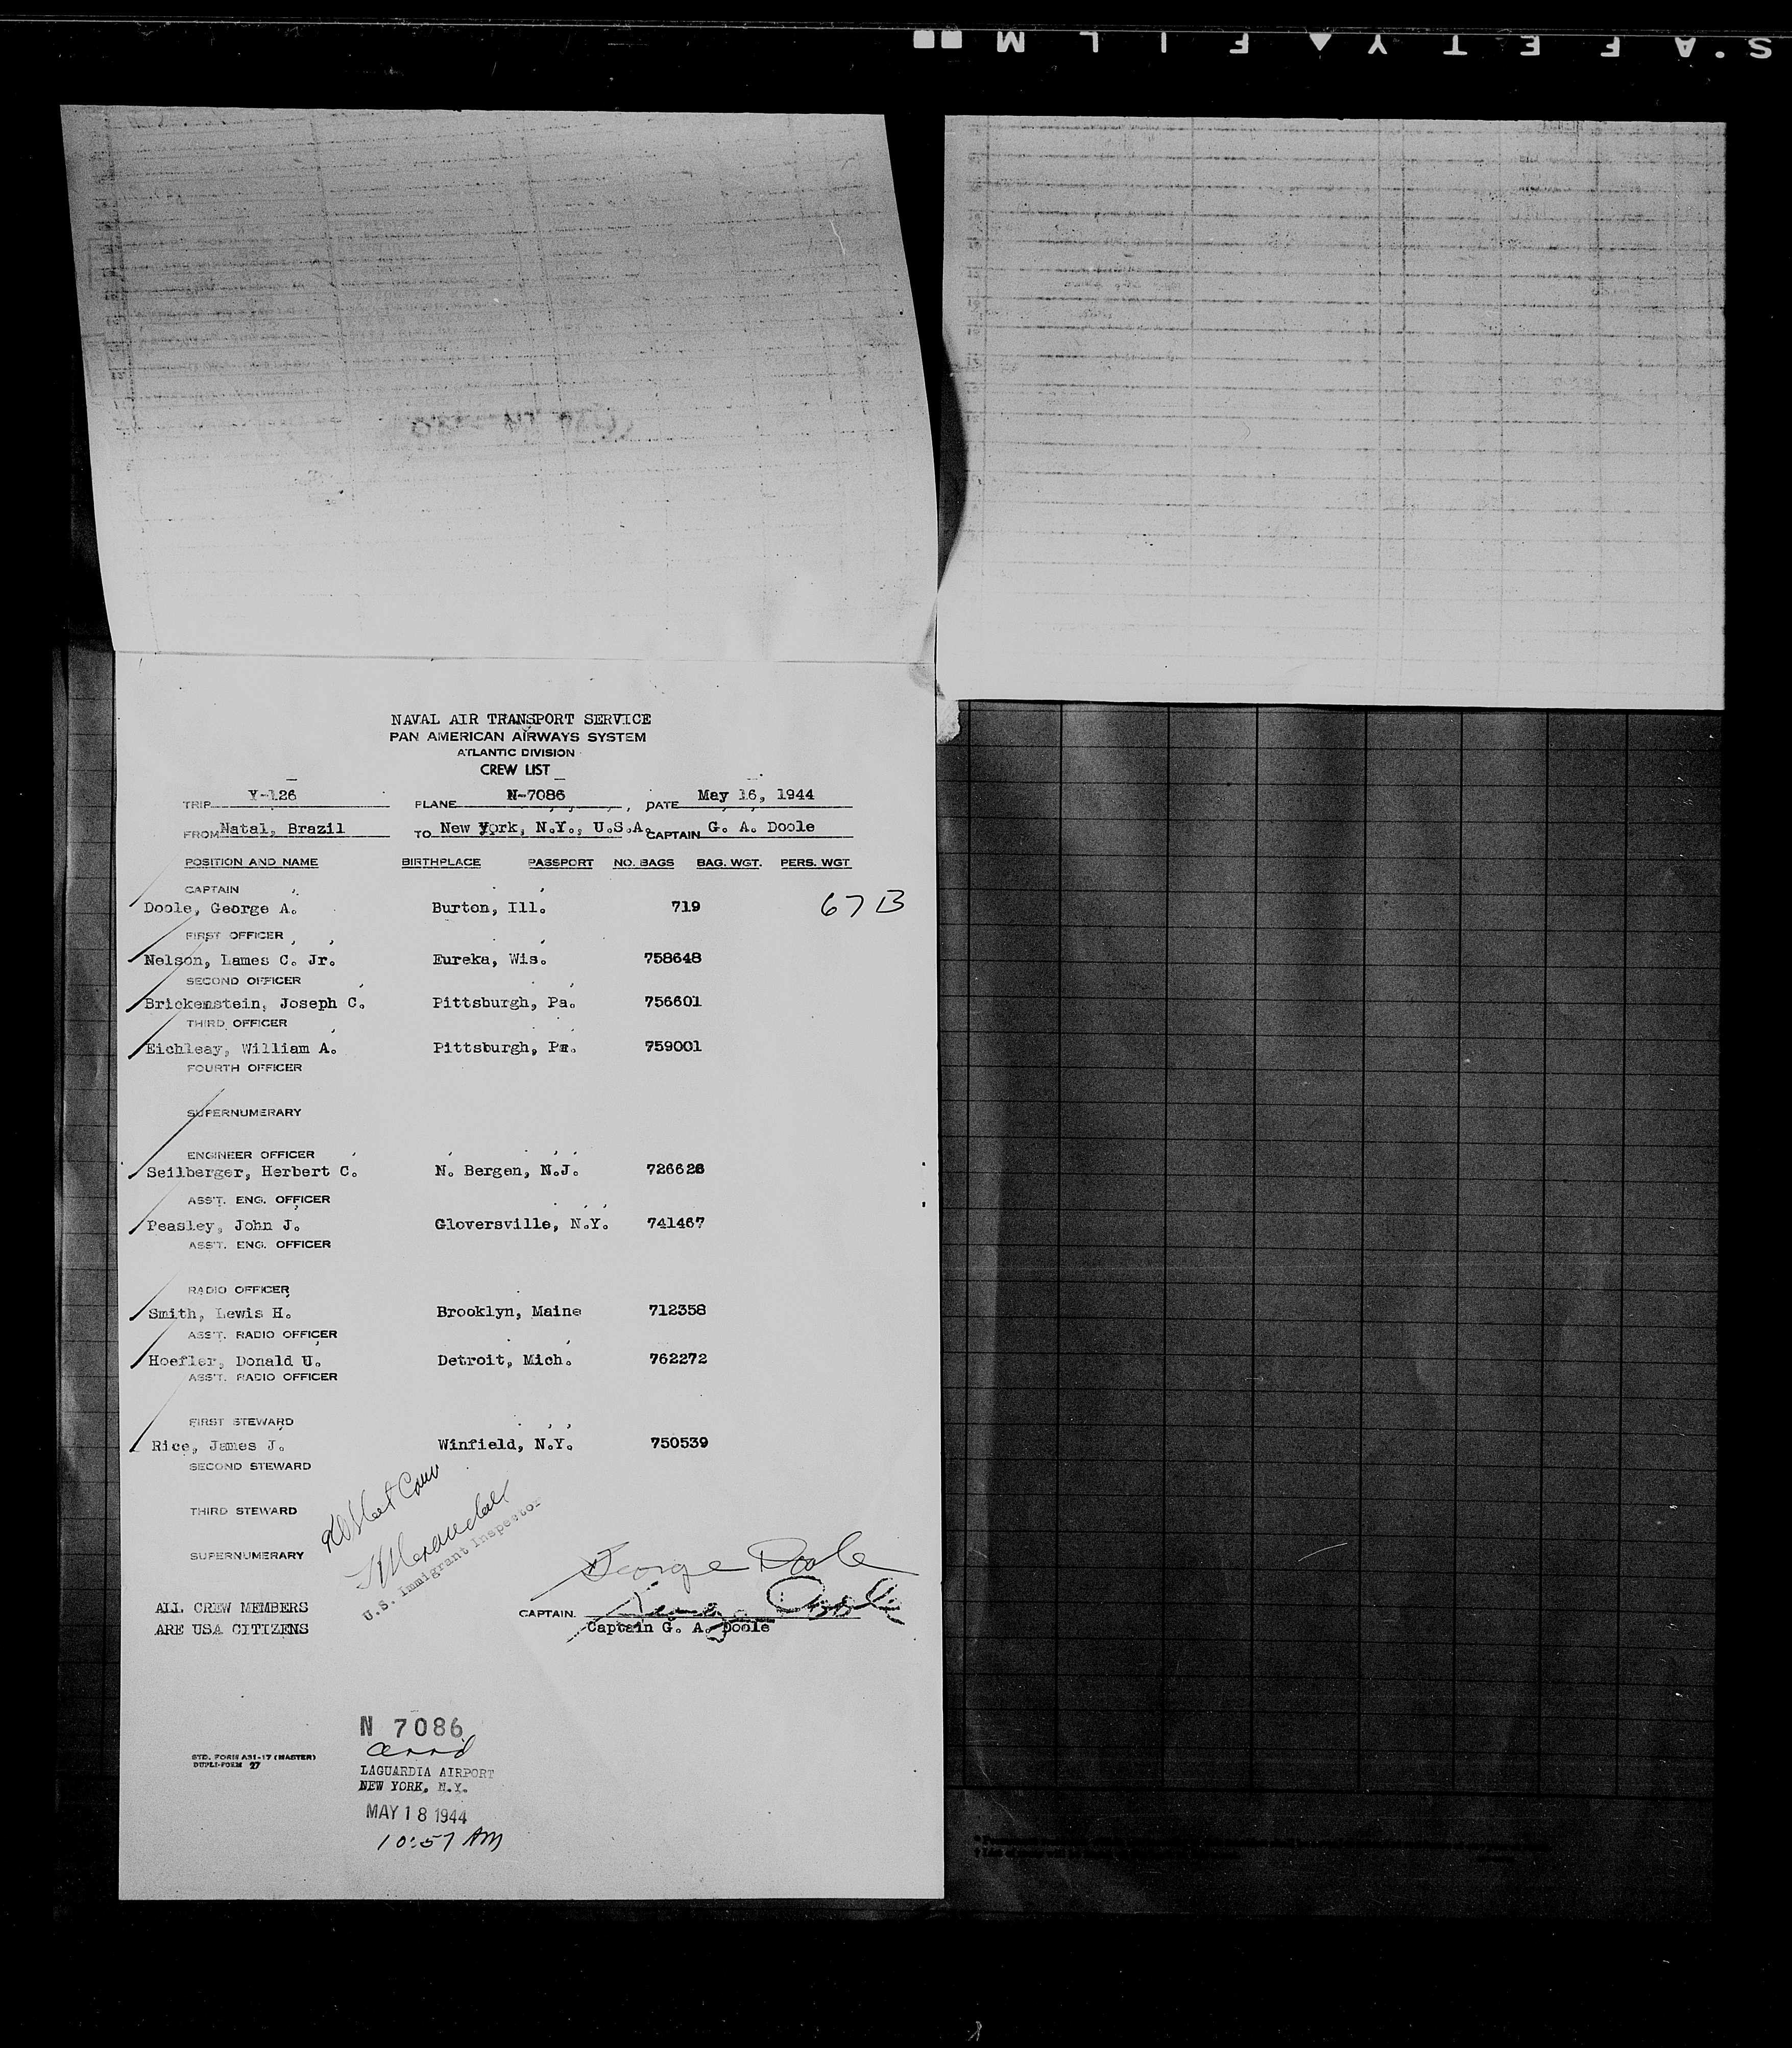 SAFETY▲FILM
NAVAL AIR TRANSPORT SERVICE
PAN AMERICAN AIRWAYS SYSTEM
ATLANTIC DIVISION
CREW LIST
TRIP Y-126 PLANE N-7086 DATE May 16, 1944
FROM Natal, Brazil TO New York, N.Y., U.S.A. CAPTAIN G. A. Doole
POSITION AND NAME BIRTHPLACE PASSPORT NO. BAGS BAG. WGT. PERS. WGT
CAPTAIN
Doole, George A. Burton, Ill. 719 67 B
FIRST OFFICER
Nelson, Lames C. Jr. Eureka, Wis. 758648
SECOND OFFICER
Brickenstein, Joseph C. Pittsburgh, Pa. 756601
THIRD OFFICER
Eichleay, William A. Pittsburgh, Pa. 759001
FOURTH OFFICER
SUPERNUMERARY
ENGINEER OFFICER
Seilberger, Herbert C. N. Bergen, N.J. 726626
ASS'T. ENG. OFFICER
Peasley, John J. Gloversville, N.Y. 741467
ASS'T. ENG. OFFICER
RADIO OFFICER
Smith, Lewis H. Brooklyn, Maine 712358
ASS'T. RADIO OFFICER
Hoefler, Donald U. Detroit, Mich. 762272
ASS'T. RADIO OFFICER
FIRST STEWARD
Rice, James J. Winfield, N.Y. 750539
SECOND STEWARD
THIRD STEWARD
SUPERNUMERARY
U.S. Immigrant Inspector
George Doole
ALL CREW MEMBERS
ARE USA CITIZENS
CAPTAIN George Doole
Captain G. A. Doole
N 7086
arrd
STD. FORM A31-17 (MASTER)
DUPLI-FORM 27
LAGUARDIA AIRPORT
NEW YORK, N.Y.
MAY 18 1944
10:57 AM